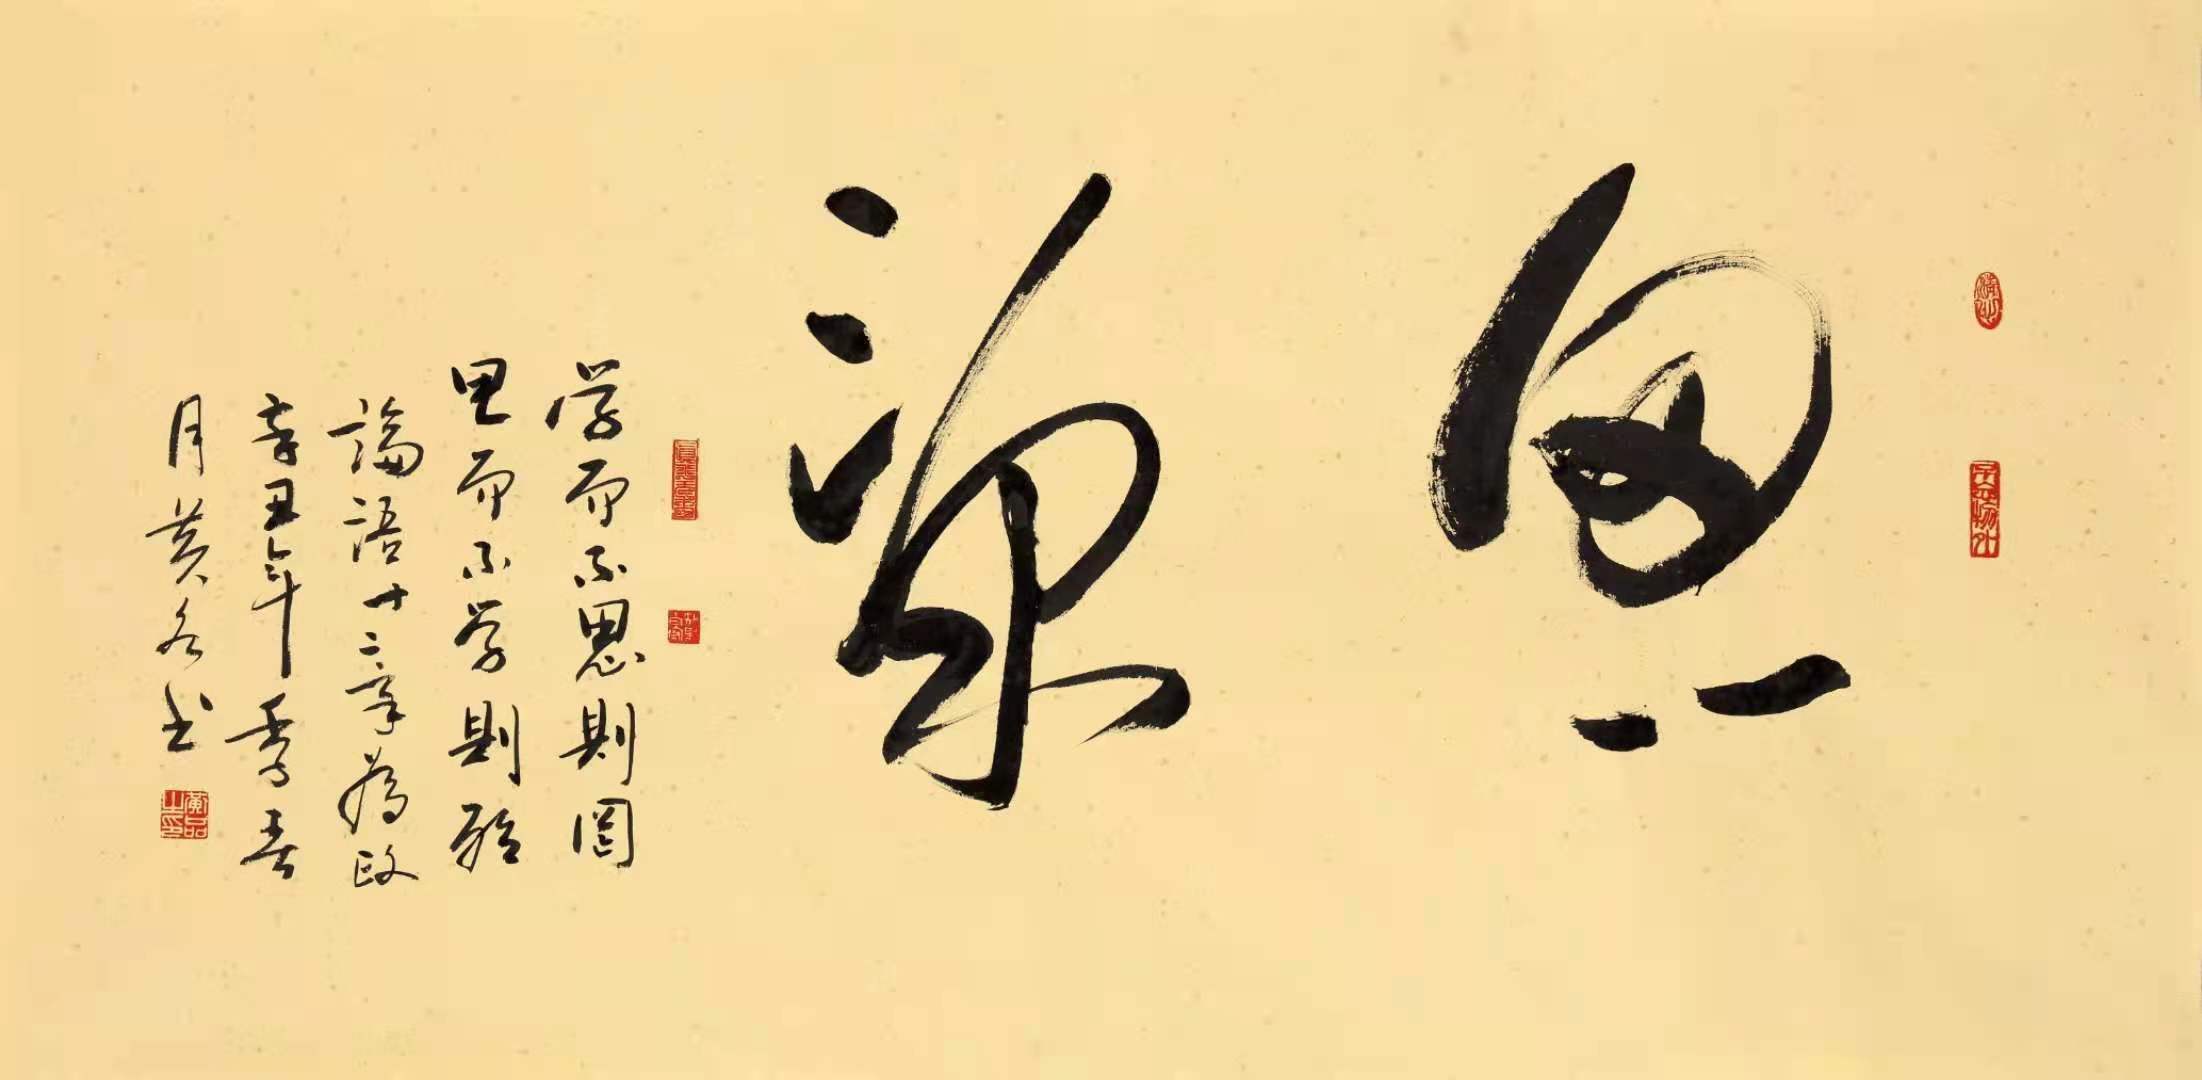 思源
学而不思則罔
思而不学則殆
論語十二章為政
辛丑年季春
月黄书